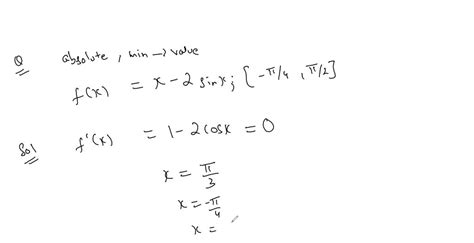 Q absolute, min → value
f(x) = x - 2 sinx; [-π/4, π/2]
Sol f'(x) = 1 - 2 cosx = 0
x = π/3
x = -π/4
x =